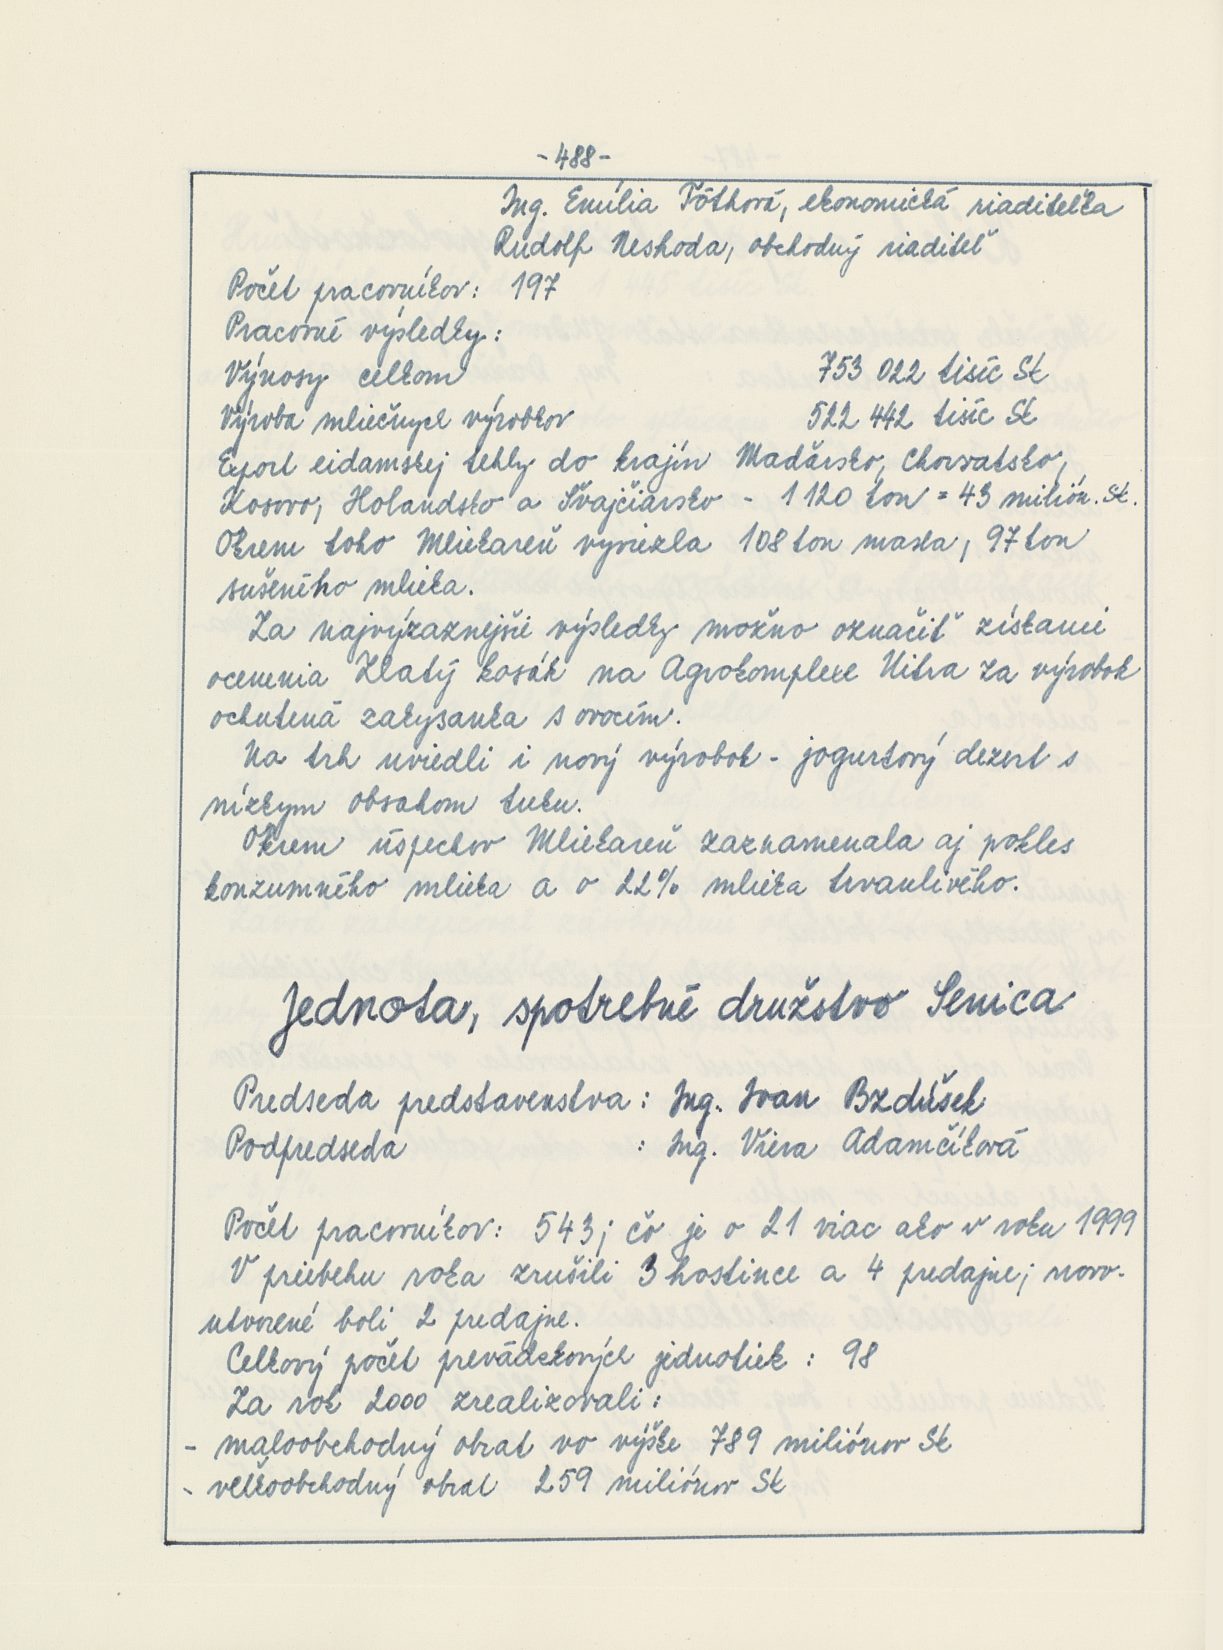 -488-
Ing. Emília Tóthová, ekonomická riaditeľka
Rudolf Neshoda, obchodný riaditeľ
Počet pracovníkov: 197
Pracovné výsledky:
Výnosy celkom 753 022 tisíc Sk
Výroba mliečnych výrobkov 522 442 tisíc Sk
Export eidamskej tehly do krajín Maďarsko, Chorvatsko,
Kosovo, Holandsko a Švajčiarsko - 1 120 ton = 43 milión. Sk.
Okrem toho Mliekareň vyviezla 108 ton masla, 97 ton
sušeného mlieka.
Za najvýraznejšie výsledky možno označiť získanie
ocenenia Zlatý kosák na Agrokomplexe Nitra za výrobok
ochutená zakysanka s ovocím.
Na trh uviedli i nový výrobok - jogurtový dezert s
nízkym obsahom tuku.
Okrem úspechov Mliekareň zaznamenala aj pokles
konzumného mlieka a o 22% mlieka trvanlivého.
Jednota, spotrebné družstvo Senica
Predseda predstavenstva : Ing. Ivan Bzdúšek
Podpredseda : Ing. Viera Adamčíková
Počet pracovníkov: 543; čo je o 21 viac ako v roku 1999
V priebehu roka zrušili 3 hostince a 4 predajne; novo-
utvorené boli 2 predajne.
Celkový počet prevádzkových jednotiek : 98
Za rok 2000 zrealizovali:
- maloobchodný obrat vo výške 789 miliónov Sk
- veľkoobchodný obrat 259 miliónov Sk